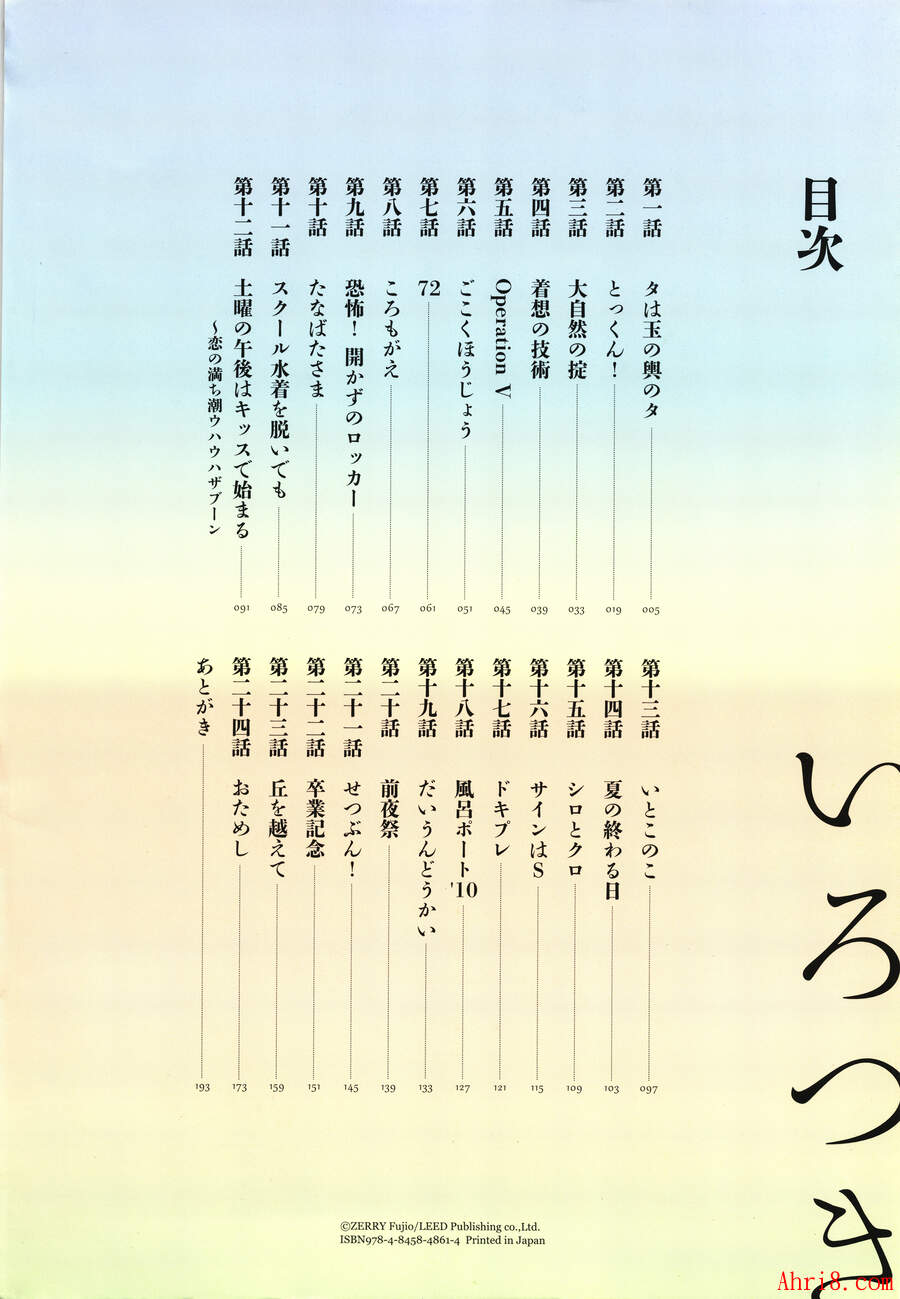 目次
いろつき
第一話 タは玉の輿のタ 005
第二話 とっくん！ 019
第三話 大自然の掟 033
第四話 着想の技術 039
第五話 Operation V 045
第六話 ごこくほうじょう 051
第七話 72 061
第八話 ころもがえ 067
第九話 恐怖！開かずのロッカー 073
第十話 たなばたさま 079
第十一話 スクール水着を脱いでも 085
第十二話 土曜の午後はキッスで始まる 091
～恋の満ち潮ウハウハザブーン
第十三話 いとこのこ 097
第十四話 夏の終わる日 103
第十五話 シロとクロ 109
第十六話 サインはS 115
第十七話 ドキプレ 121
第十八話 風呂ポート'10 127
第十九話 だいうんどうかい 133
第二十話 前夜祭 139
第二十一話 せつぶん！ 145
第二十二話 卒業記念 151
第二十三話 丘を越えて 159
第二十四話 おためし 173
あとがき 193
©ZERRY Fujio/LEED Publishing co.,Ltd.
ISBN978-4-8458-4861-4 Printed in Japan
Ahri8.com